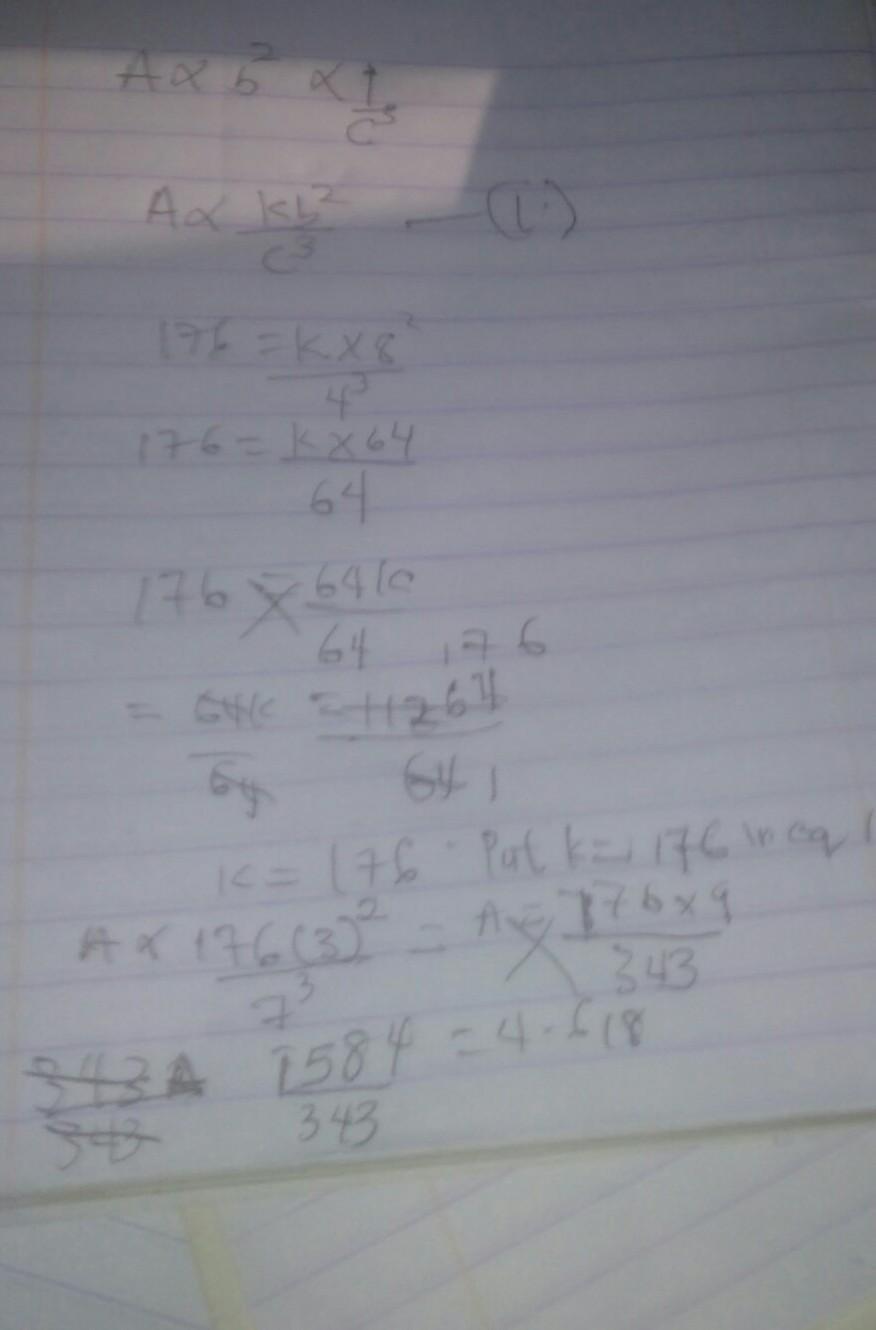 A ∝ b² ∝ 1/c³
A ∝ kb²/c³ — (i)
176 = k×8²/4³
176 = k×64/64
176 = 64k/64
176
= 64k/64 = 11264/64 1
k = 176 . Put k = 176 in eq 1
A ∝ 176(3)²/7³ = A = 176×9/343
343A/343 1584/343 = 4.618